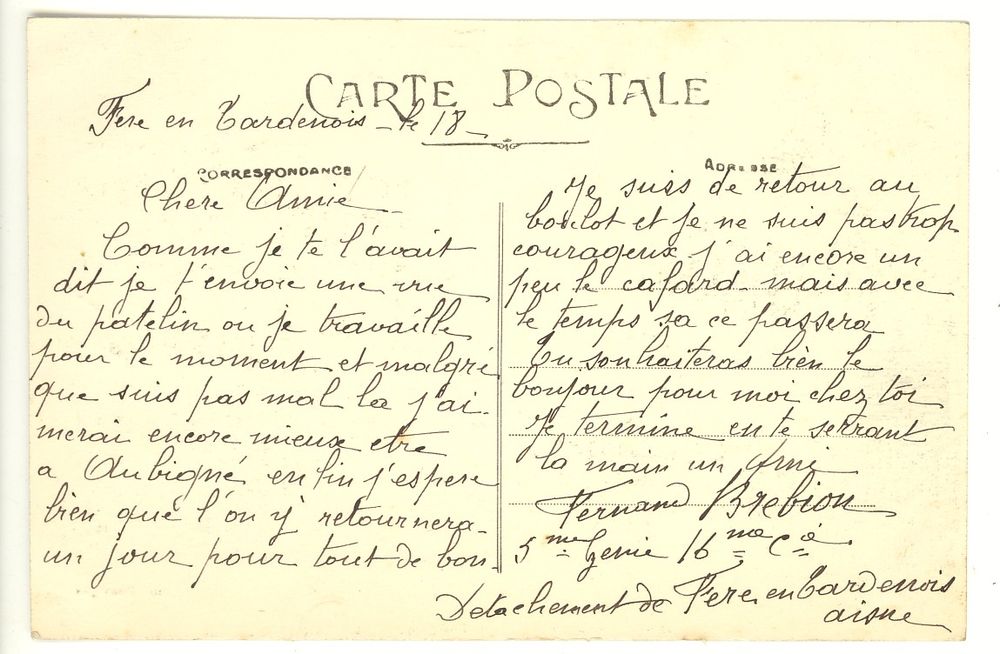 CARTE POSTALE
Fere en Tardenois - le 18 -
CORRESPONDANCE
Chere Amie
Comme je te l'avait
dit je t'envoie une vue
du patelin ou je travaille
pour le moment et malgré
que suis pas mal la j'ai-
merai encore mieux etre
a Aubigné enfin j'espere
bien que l'on y retournera
un jour pour tout de bon.
ADRESSE
Je suis de retour au
boulot et je ne suis pas trop
courageux j'ai encore un
peu le cafard - mais avec
le temps sa ce passera
Tu souhaiteras bien le
bonjour pour moi chez toi
Je termine en te serrant
la main un Ami
Fernand Brebion
5me Genie 16me Cie
Detachement de Fere en Tardenois
aisne